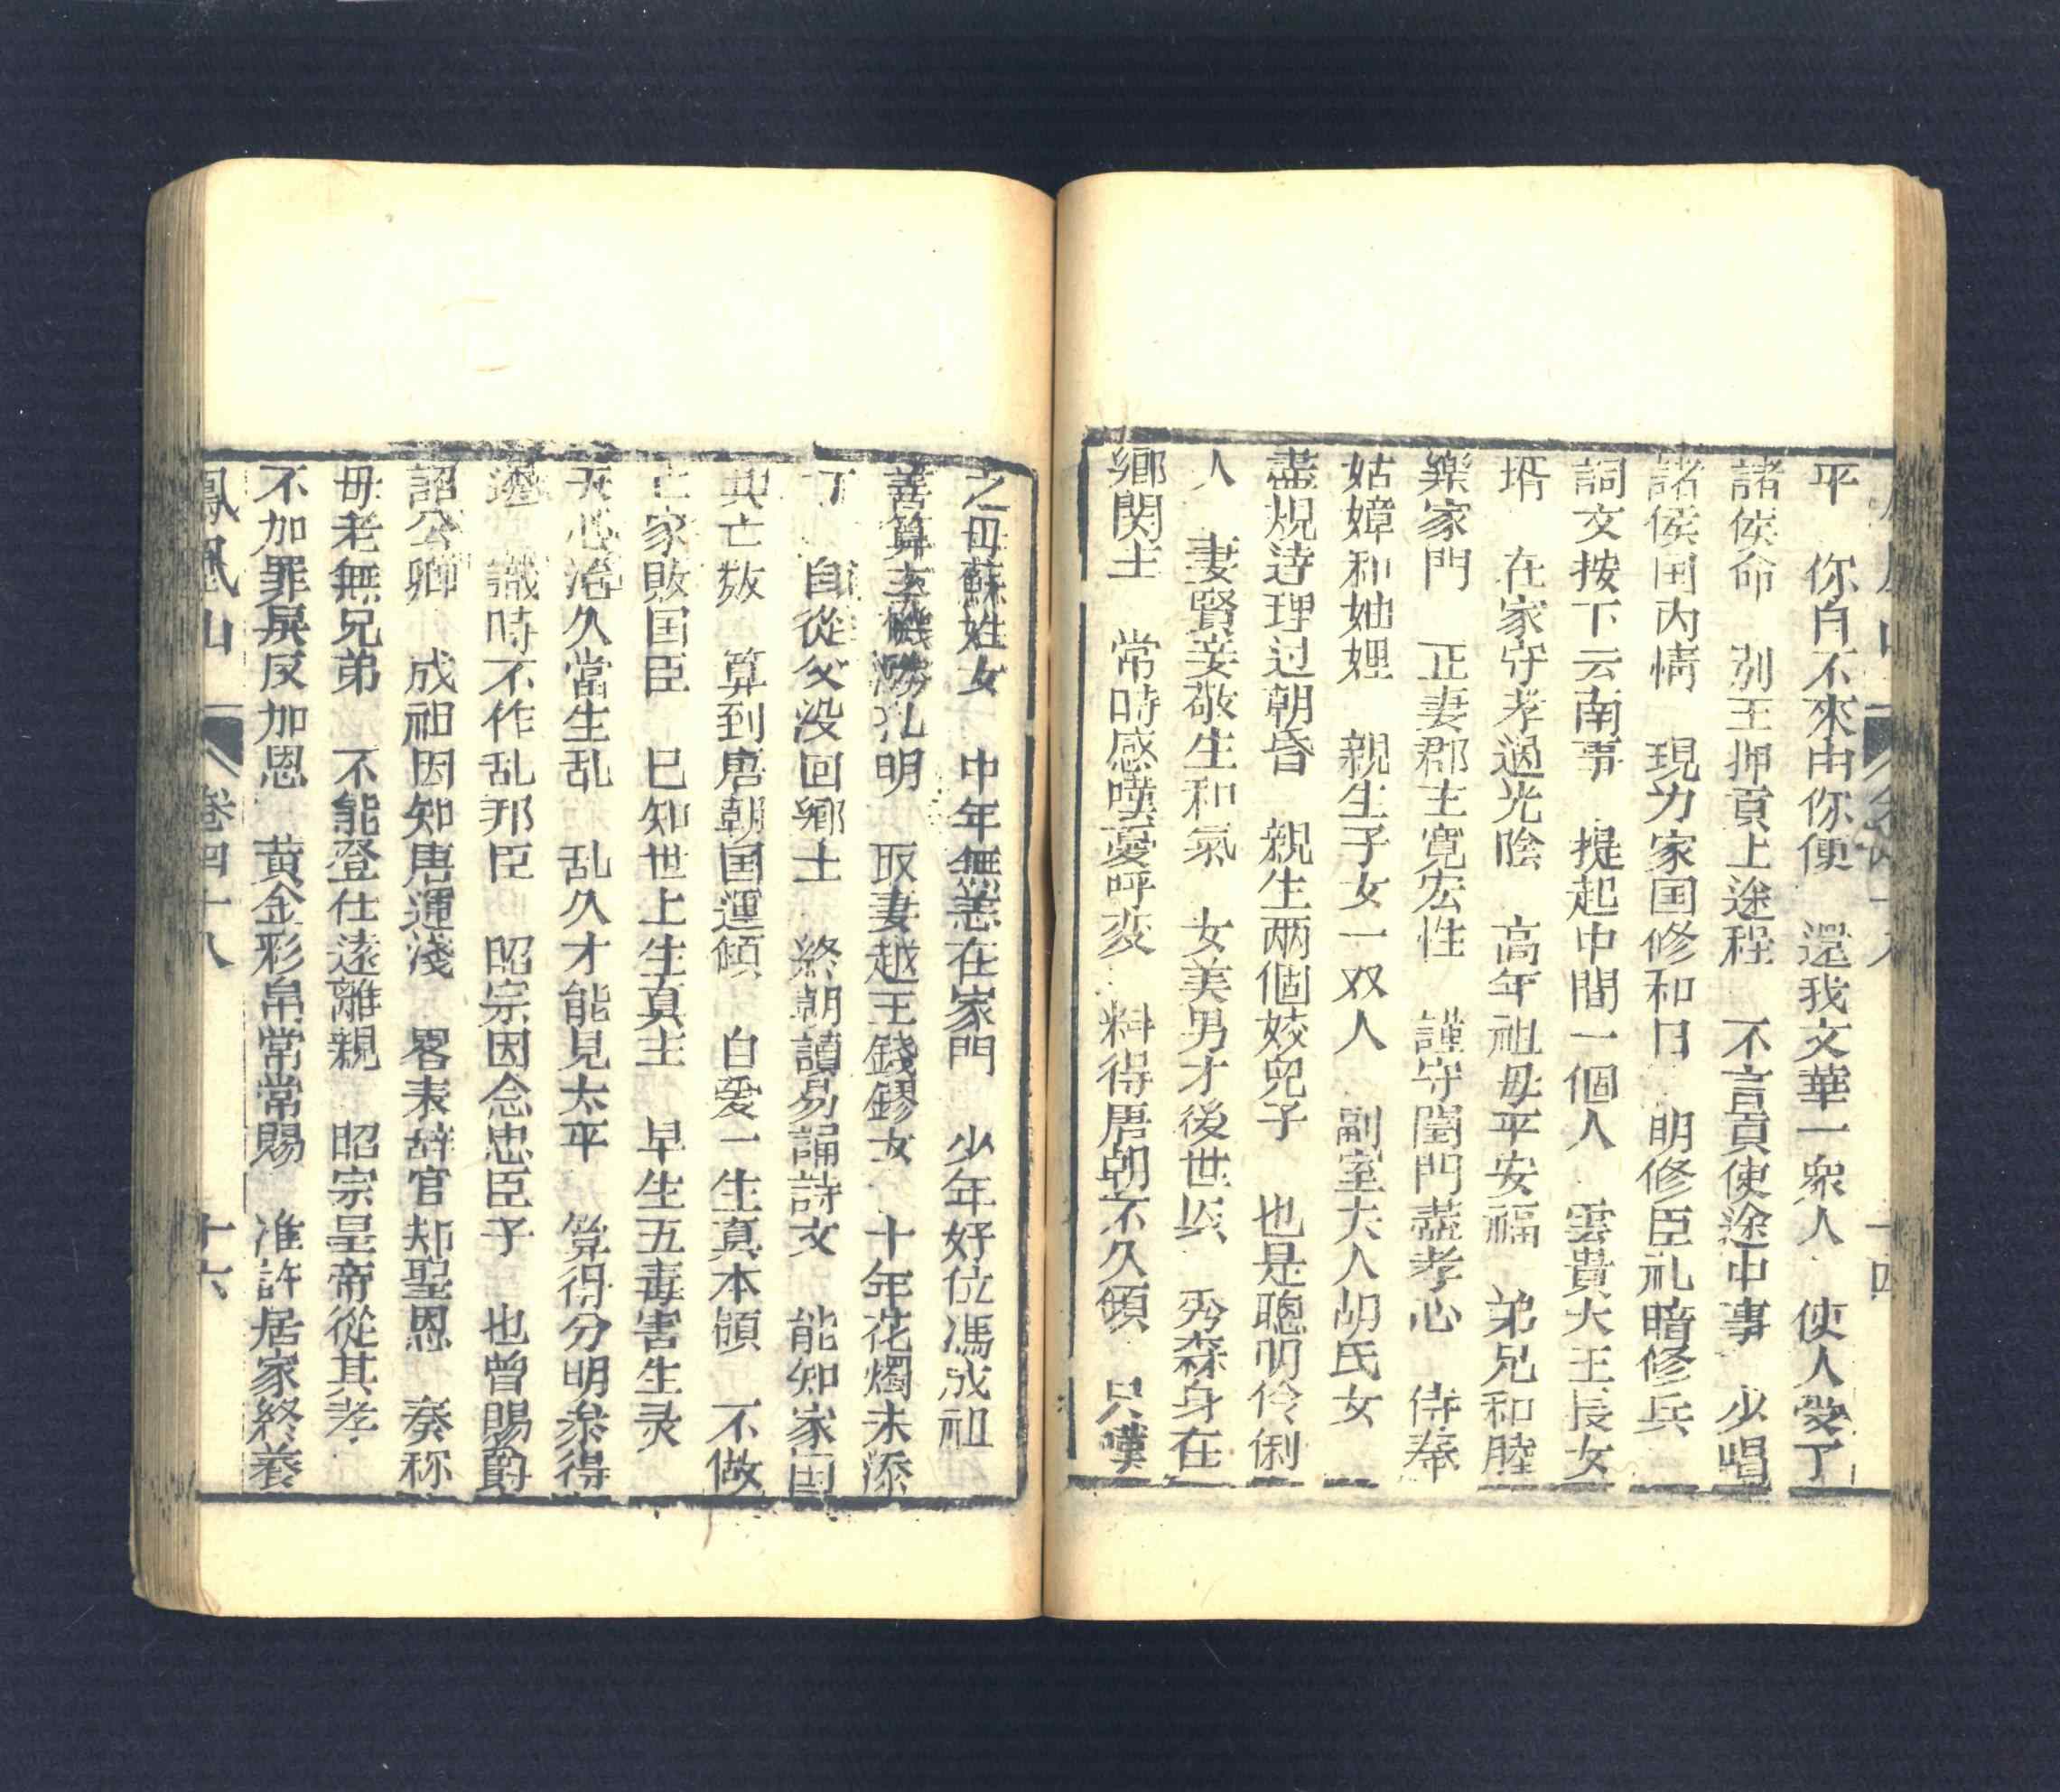 平　你自不來由你便　還我文華一衆人　使人受了
諸侯命　列王押貢上途程　不言貢使途中事　少唱
諸侯国内情　現力家国修和日　明修臣礼暗修兵
詞文按下云南事　提起中間一個人　雲貴大王長女
壻　在家守孝過光陰　高年祖母平安福　弟兄和睦
樂家門　正妻郡主寛宏性　謹守閨門盡孝心　侍奉
姑嫜和妯娌　親生子女一双人　副室夫人胡氏女
盡規達理过朝昏　親生兩個姣兒子　也是聰明伶俐
人　妻賢妾敬生和氣　女美男才後世　秀森身在
鄉関主　常時感嘆憂呼变　料得唐朝不久傾　只嘆
之母蘇姓女　中年無恙在家門　少年好位馮成祖
善算玄機勝孔明　取妻越王錢鏐女　十年花燭未添
丁　自從父没回鄉土　終朝讀易誦詩文　能知家国
興亡数　算到唐朝国運傾　自愛一生真本領　不做
亡家敗国臣　已知世上生真主　早生五毒害生灵
天心治久當生乱　乱久才能見太平　筭得分明叅得
透　識時不作乱邦臣　昭宗因念忠臣子　也曾賜爵
詔公卿　成祖因知唐運淺　畧表辞官却聖恩　奏称
毋老無兄弟　不能登仕遠離親　昭宗皇帝從其孝
不加罪戾反加恩　黄金彩帛常常賜　准許居家終養
鳳凰山　卷四十八　十六